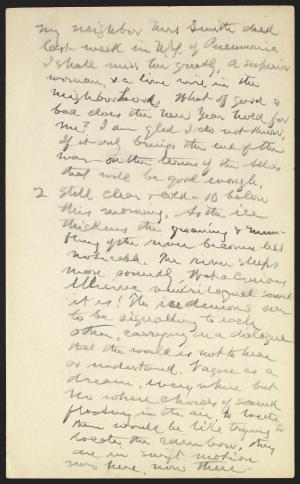 My neighbor Mrs Smith died
last week in N.Y. of Pneumonia
I shall miss her greatly, a superior
woman, & a live wire in the
neighborhood. What of good &
bad does the New Year hold for
me? I am glad I do not know.
If it only brings the end of the
war - on the terms of the Allies
that will be good enough.
2 Still clear & cold - 10 below
this morning. As the ice
thickens the groaning &
of the river becomes less
noticable. The river sleeps
more soundly. What a curious
elusive ventriloquial sound
it is! The ice demons seem
to be signalling to each
other, carrying on a dialogue
that the world is not to hear
or understand. Vague as a
dream, everywhere but
no where, chords of sound
floating in the air, to locate
them would be like trying to
locate the rainbow. They
are in swift motion
now here, now there.